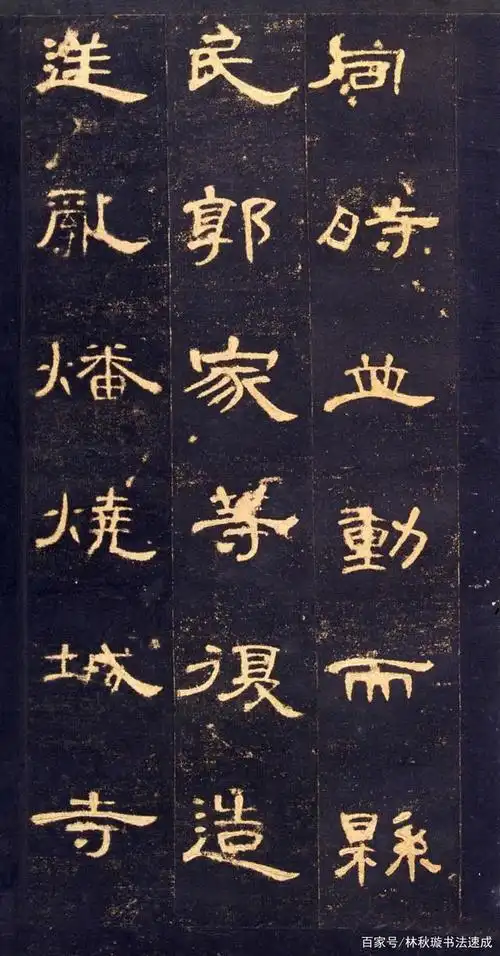 同時並動而縣
民郭家等復造
逆亂燔燒城寺
百家号/林秋璇书法速成